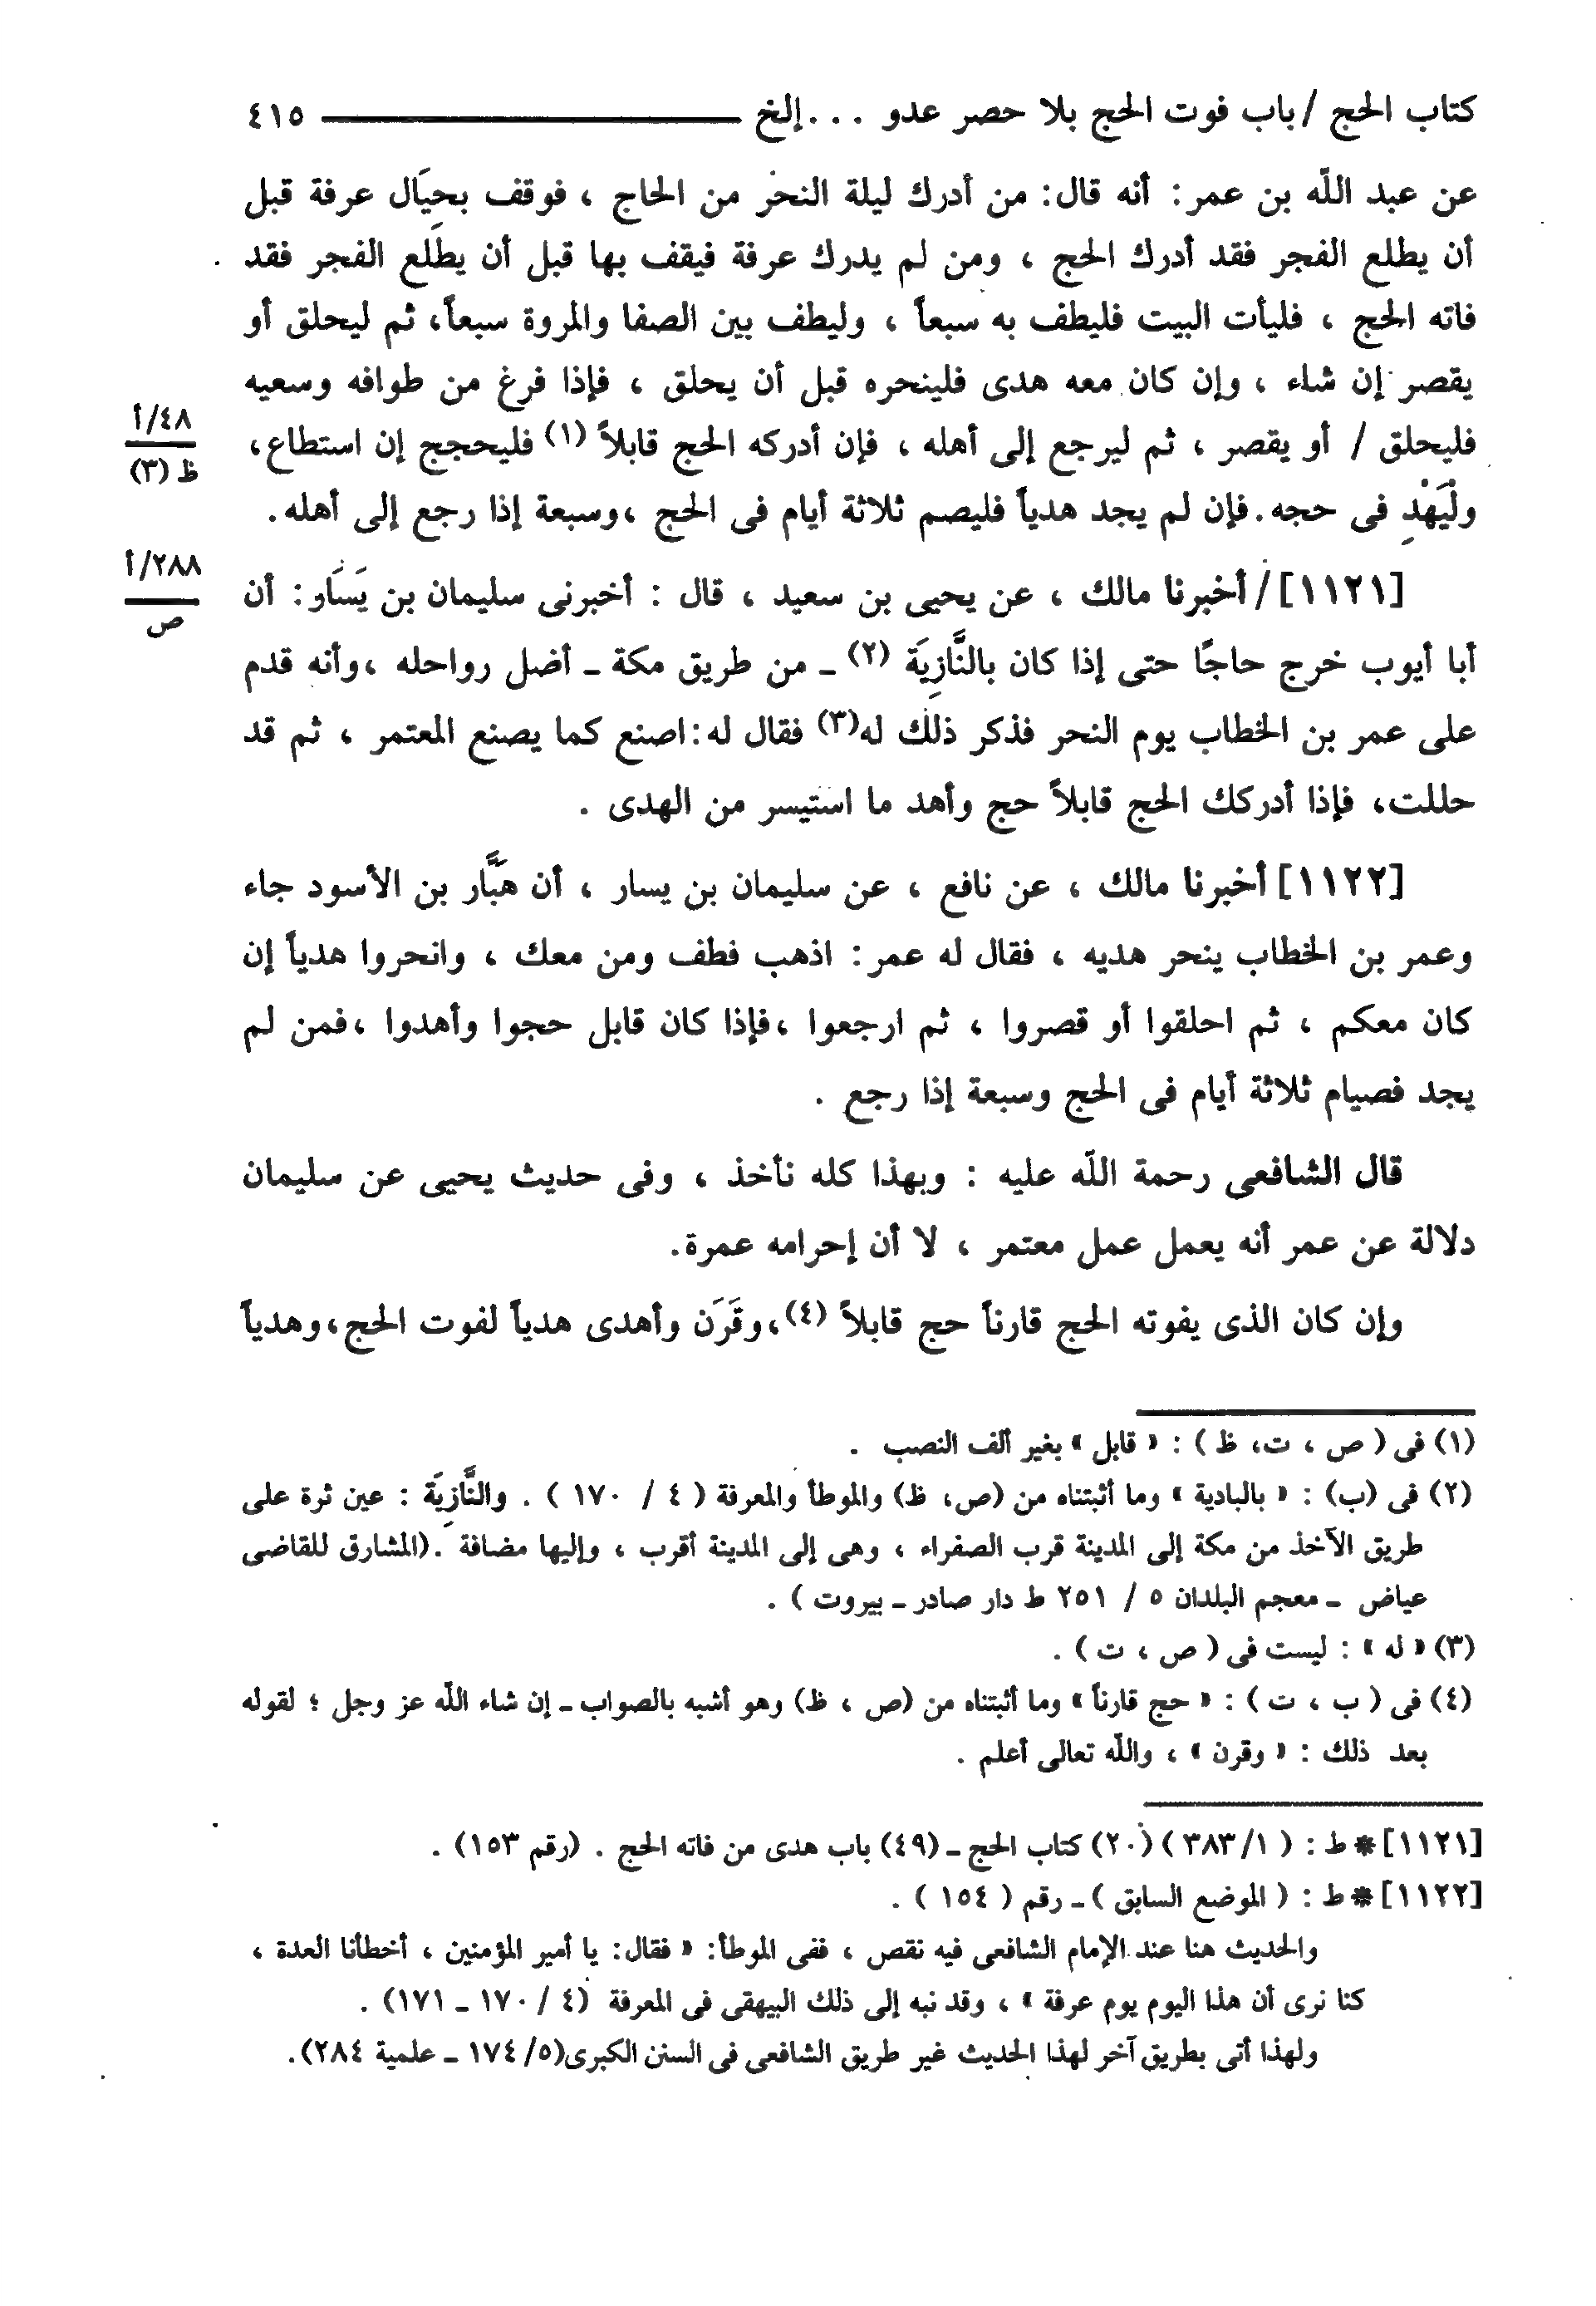 كتاب الحج / باب فوت الحج بلا حصر عدو . . . إلخ ــــــــــــ ٤١٥
عن عبد اللّه بن عمر: أنه قال: من أدرك ليلة النحر من الحاج ، فوقف بحِيَال عرفة قبل
أن يطلع الفجر فقد أدرك الحج ، ومن لم يدرك عرفة فيقف بها قبل أن يطلَع الفجر فقد
فاته الحج ، فليأت البيت فليطف به سبعاً ، وليطف بين الصفا والمروة سبعاً، ثم ليحلق أو
يقصر إن شاء ، وإن كان معه هدى فلينحره قبل أن يحلق ، فإذا فرغ من طوافه وسعيه
فليحلق / أو يقصر ، ثم ليرجع إلى أهله ، فإن أدركه الحج قابلاً (١) فليحجج إن استطاع،
٤٨/أ
ظ (٣)
ولْيَهْدِ فى حجه. فإن لم يجد هدياً فليصم ثلاثة أيام فى الحج ،وسبعة إذا رجع إلى أهله.
[١١٢١]/ أخبرنا مالك ، عن يحيى بن سعيد ، قال : أخبرنى سليمان بن يَسَار: أن
٢٨٨/أ
ص
أبا أيوب خرج حاجًا حتى إذا كان بالنَّازِيَة (٢) ـ من طريق مكة ـ أضل رواحله ،وأنه قدم
على عمر بن الخطاب يوم النحر فذكر ذلك له(٣) فقال له:اصنع كما يصنع المعتمر ، ثم قد
حللت، فإذا أدركك الحج قابلاً حج وأهد ما استيسر من الهدى .
[١١٢٢] أخبرنا مالك ، عن نافع ، عن سليمان بن يسار ، أن هَبَّار بن الأسود جاء
وعمر بن الخطاب ينحر هديه ، فقال له عمر: اذهب فطف ومن معك ، وانحروا هدياً إن
كان معكم ، ثم احلقوا أو قصروا ، ثم ارجعوا ،فإذا كان قابل حجوا وأهدوا ،فمن لم
يجد فصيام ثلاثة أيام فى الحج وسبعة إذا رجع .
قال الشافعى رحمة اللّه عليه : وبهذا كله نأخذ ، وفى حديث يحيى عن سليمان
دلالة عن عمر أنه يعمل عمل معتمر ، لا أن إحرامه عمرة.
وإن كان الذى يفوته الحج قارناً حج قابلاً (٤)،وقَرَن وأهدى هدياً لفوت الحج،وهدياً
(١) فى ( ص ، ت، ظ ) : « قابل » بغير ألف النصب .
(٢) فى (ب) : « بالبادية » وما أثبتناه من (ص، ظ) والموطأ والمعرفة ( ٤ / ١٧٠ ) . والنَّازِيَة : عين ثرة على
طريق الآخذ من مكة إلى المدينة قرب الصفراء ، وهى إلى المدينة أقرب ، وإليها مضافة .(المشارق للقاضى
عياض ـ معجم البلدان ٥ / ٢٥١ ط دار صادر ـ بيروت ) .
(٣) « له » : ليست فى ( ص ، ت ) .
(٤) فى ( ب ، ت ) : « حج قارناً » وما أثبتناه من (ص ، ظ) وهو أشبه بالصواب ـ إن شاء اللّه عز وجل ؛ لقوله
بعد ذلك : « وقرن » ، واللّه تعالى أعلم .
[١١٢١] * ط : ( ١/ ٣٨٣ ) (٢٠) كتاب الحج ـ (٤٩) باب هدى من فاته الحج . (رقم ١٥٣) .
[١١٢٢] * ط : ( الموضع السابق ) ـ رقم ( ١٥٤ ) .
والحديث هنا عند الإمام الشافعى فيه نقص ، ففى الموطأ: « فقال: يا أمير المؤمنين ، أخطأنا العدة ،
كنا نرى أن هذا اليوم يوم عرفة » ، وقد نبه إلى ذلك البيهقى فى المعرفة (٤ / ١٧٠ ـ ١٧١) .
ولهذا أتى بطريق آخر لهذا الحديث غير طريق الشافعى فى السنن الكبرى(٥/ ١٧٤ ـ علمية ٢٨٤).